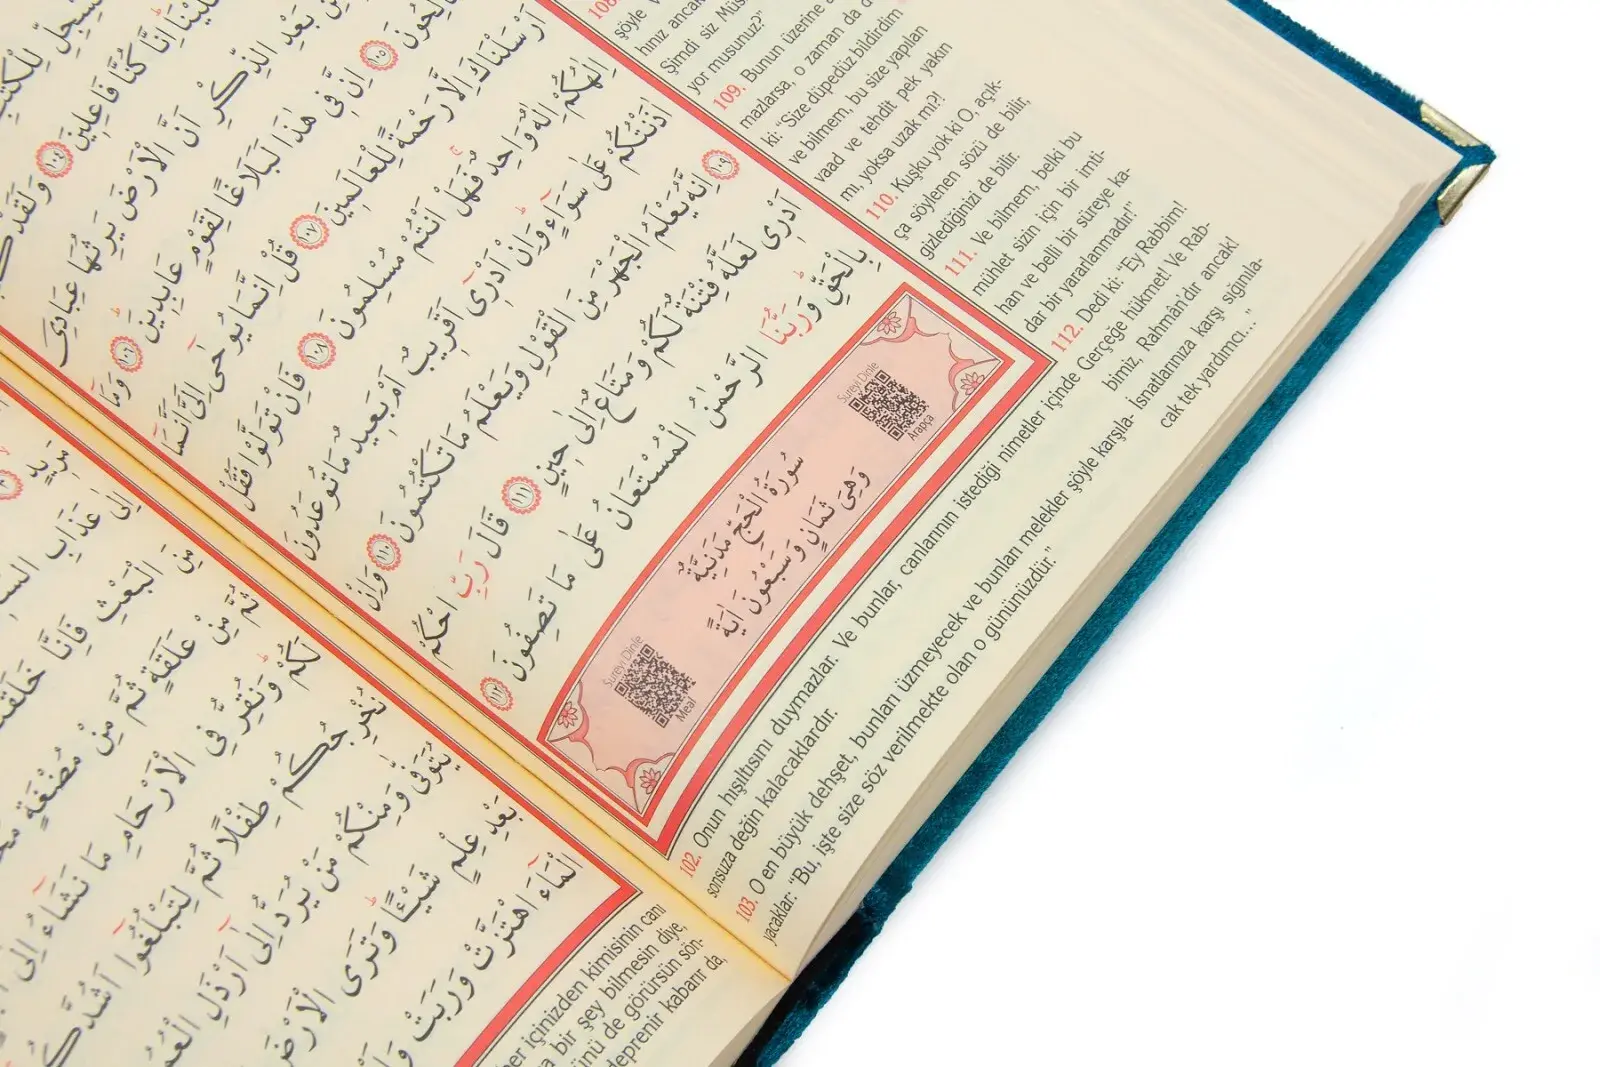 لِلْكُتُبِ
اِنَّا كُنَّا فَاعِل۪ينَ ﴿١٠٤﴾ وَلَقَدْ
بَعْدِ الذِّكْرِ اَنَّ الْاَرْضَ يَرِثُهَا عِبَادِيَ
﴿١٠٥﴾ اِنَّ ف۪ي هٰذَا لَبَلَاغًا لِقَوْمٍ عَابِد۪ينَ ﴿١٠٦﴾ وَمَٓا
اَرْسَلْنَاكَ اِلَّا رَحْمَةً لِلْعَالَم۪ينَ ﴿١٠٧﴾ قُلْ اِنَّمَا يُوحٰٓى اِلَيَّ اَنَّمَٓا
اِلٰهُكُمْ اِلٰهٌ وَاحِدٌ فَهَلْ اَنْتُمْ مُسْلِمُونَ ﴿١٠٨﴾ فَاِنْ تَوَلَّوْا فَقُلْ
اٰذَنْتُكُمْ عَلٰى سَوَٓاءٍ وَاِنْ اَدْر۪ٓي اَقَر۪يبٌ اَمْ بَع۪يدٌ مَا تُوعَدُونَ
﴿١٠٩﴾ اِنَّهُ يَعْلَمُ الْجَهْرَ مِنَ الْقَوْلِ وَيَعْلَمُ مَا تَكْتُمُونَ ﴿١١٠﴾ وَاِنْ
اَدْر۪ي لَعَلَّهُ فِتْنَةٌ لَكُمْ وَمَتَاعٌ اِلٰى ح۪ينٍ ﴿١١١﴾ قَالَ رَبِّ احْكُمْ
بِالْحَقِّ وَرَبُّنَا الرَّحْمٰنُ الْمُسْتَعَانُ عَلٰى مَا تَصِفُونَ ﴿١١٢﴾
Sureyi Dinle
Arapça
سُورَةُ الْحَجِّ مَدَنِيَّةٌ
وَهِيَ ثَمَانٍ وَسَبْعُونَ اٰيَةً
Sureyi Dinle
Meal
108.
şöyle
hınız ancak
Şimdi siz Müs
yor musunuz?"
109. Bunun üzerine
mazlarsa, o zaman da d
ki: "Size düpedüz bildirdim
ve bilmem, bu size yapılan
vaad ve tehdit pek yakın
mı, yoksa uzak mı?!
110. Kuşku yok ki O, açık-
ça söylenen sözü de bilir,
gizlediğinizi de bilir.
111. Ve bilmem, belki bu
mühlet sizin için bir imti-
han ve belli bir süreye ka-
dar bir yararlanmadır!"
112. Dedi ki: "Ey Rabbim!
Gerçeğe hükmet! Ve Rab-
bimiz, Rahmân'dır ancak!
İsnatlarınıza karşı sığınıla-
cak tek yardımcı..."
102. Onun hışıltısını duymazlar. Ve bunlar, canlarının istediği nimetler içinde
sonsuza değin kalacaklardır.
103. O en büyük dehşet, bunları üzmeyecek ve bunları melekler şöyle karşıla-
yacaklar: "Bu, işte size söz verilmekte olan o gününüzdür."
اِلٰى عَذَابِ
مِنَ الْبَعْثِ فَاِنَّا
ثُمَّ مِنْ عَلَقَةٍ ثُمَّ مِنْ مُضْغَةٍ
لَكُمْ وَنُقِرُّ فِي الْاَرْحَامِ مَا نَشَٓاءُ اِلٰٓى
نُخْرِجُكُمْ طِفْلًا ثُمَّ لِتَبْلُغُٓوا اَشُدَّكُمْ
يُتَوَفّٰى وَمِنْكُمْ مَنْ يُرَدُّ اِلٰٓى اَرْذَلِ
بَعْدِ عِلْمٍ شَيْـًٔا وَتَرَى الْاَرْضَ
الْمَٓاءَ اهْتَزَّتْ وَرَبَتْ
içinizden kimisinin canı
bir şey bilmesin diye,
de görürsün sön-
deprenir kabarır da,